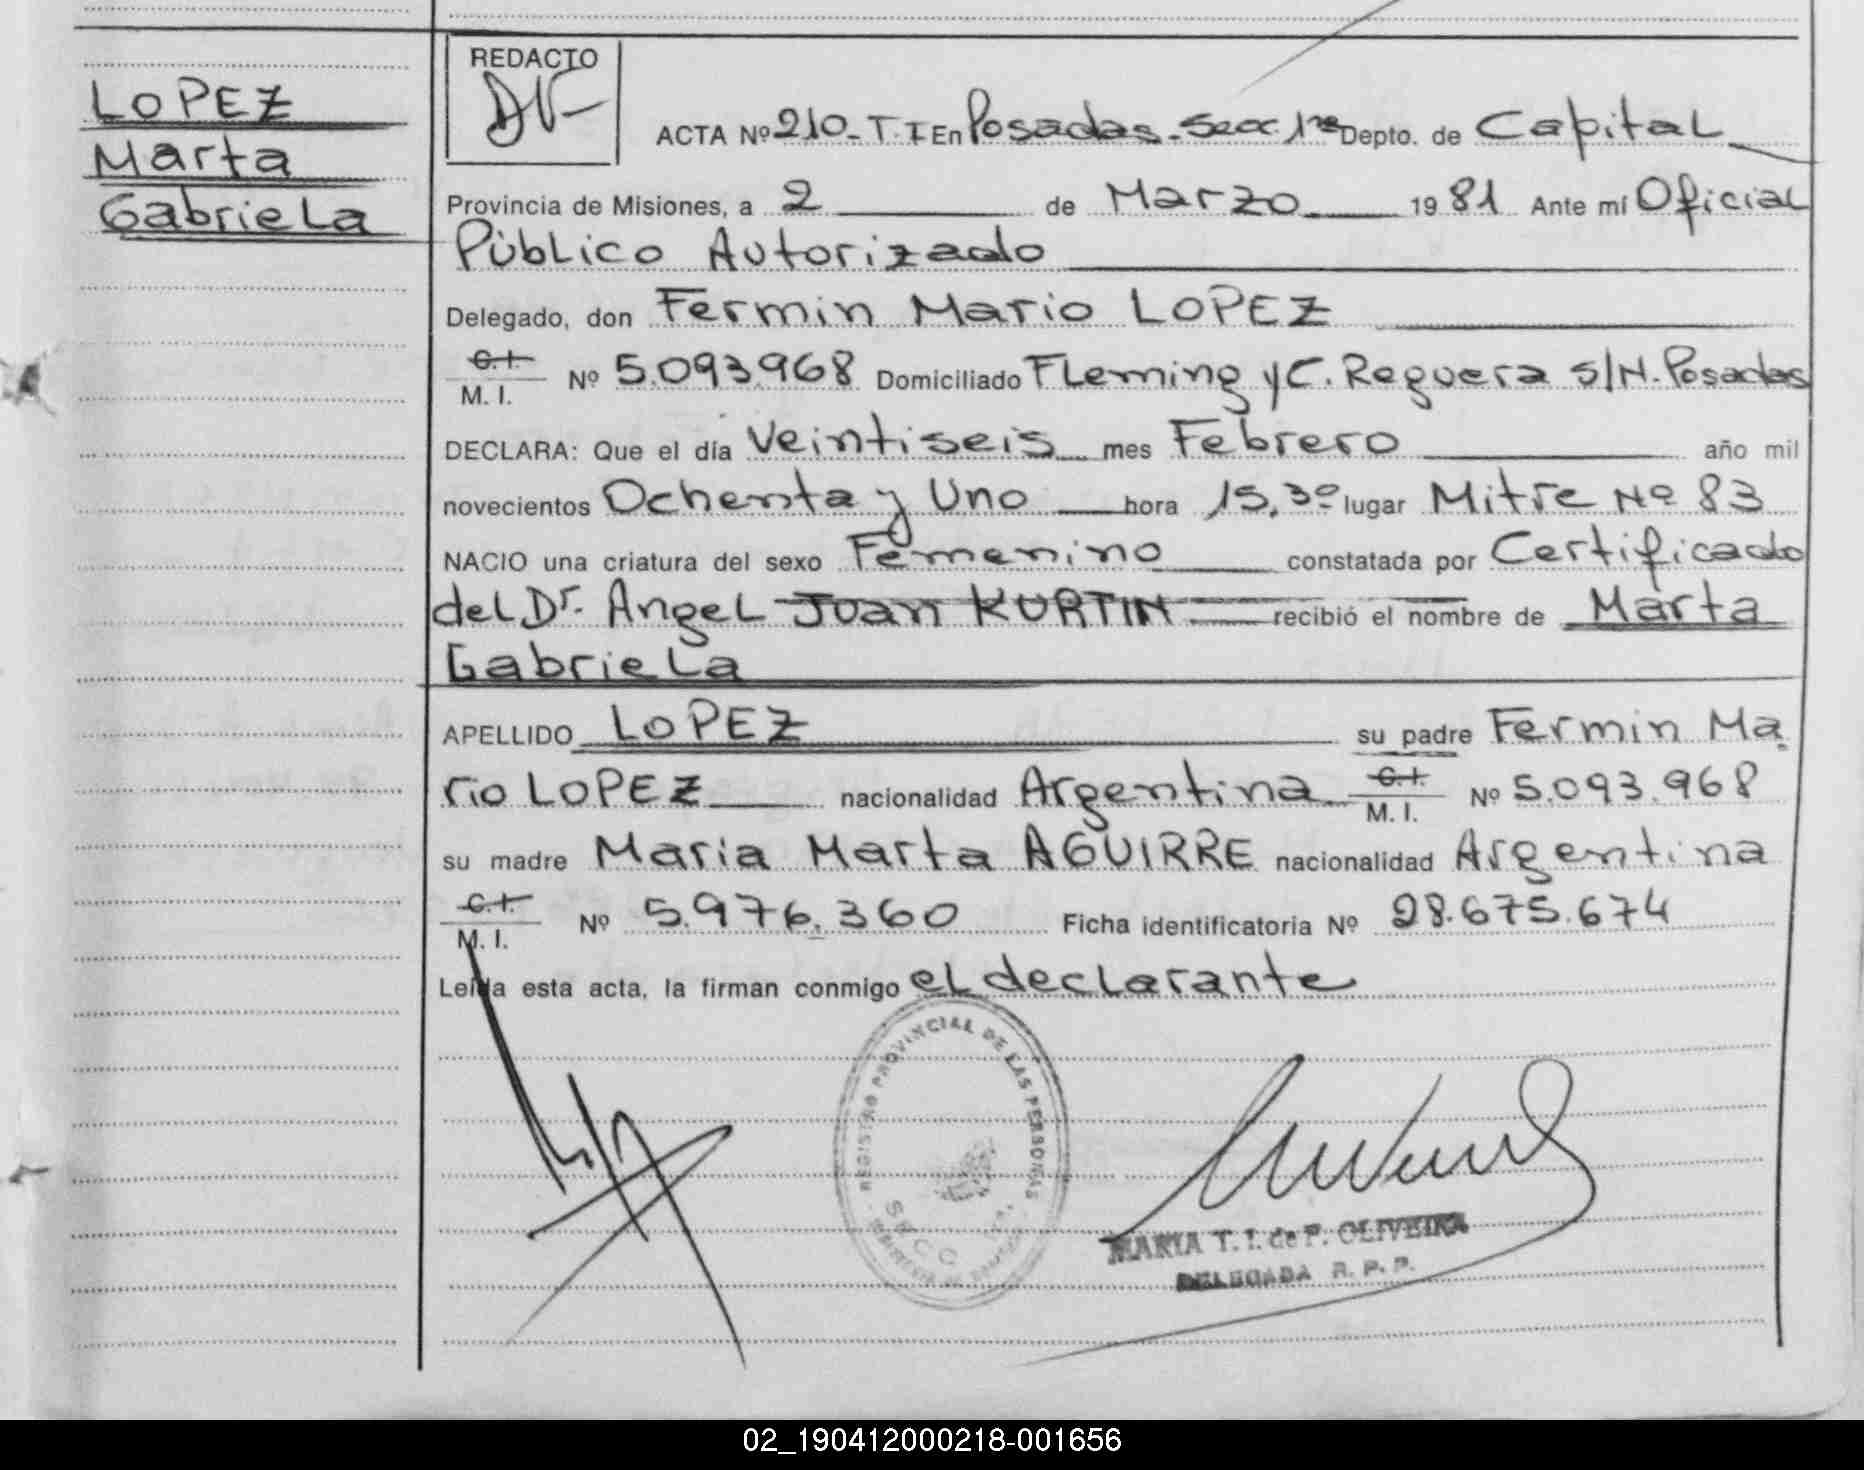 LOPEZ
Marta
Gabriela
REDACTO
ACTA Nº 210-T.I En Posadas-Secc. 1ra Depto. de Capital
Provincia de Misiones, a 2 de Marzo 19 81 Ante mí Oficial
Público Autorizado
Delegado, don Fermin Mario LOPEZ
C.I.
M. I. Nº 5.093.968 Domiciliado Fleming y C. Reguera S/N. Posadas
DECLARA: Que el día Veintiseis mes Febrero año mil
novecientos Ochenta y Uno hora 15,30 lugar Mitre Nº 83
NACIO una criatura del sexo Femenino constatada por Certificado
del Dr. Angel Juan KURTIN recibió el nombre de Marta
Gabriela
APELLIDO LOPEZ su padre Fermin Ma
rio LOPEZ nacionalidad Argentina C.I.
M. I. Nº 5.093.968
su madre Maria Marta AGUIRRE nacionalidad Argentina
C.I.
M. I. Nº 5.976.360 Ficha identificatoria Nº 28.675.674
Leída esta acta, la firman conmigo el declarante
REGISTRO PROVINCIAL DE LAS PERSONAS
SECC
MARIA T. I. de P. OLIVEIRA
DELEGADA R. P. P.
02_190412000218-001656